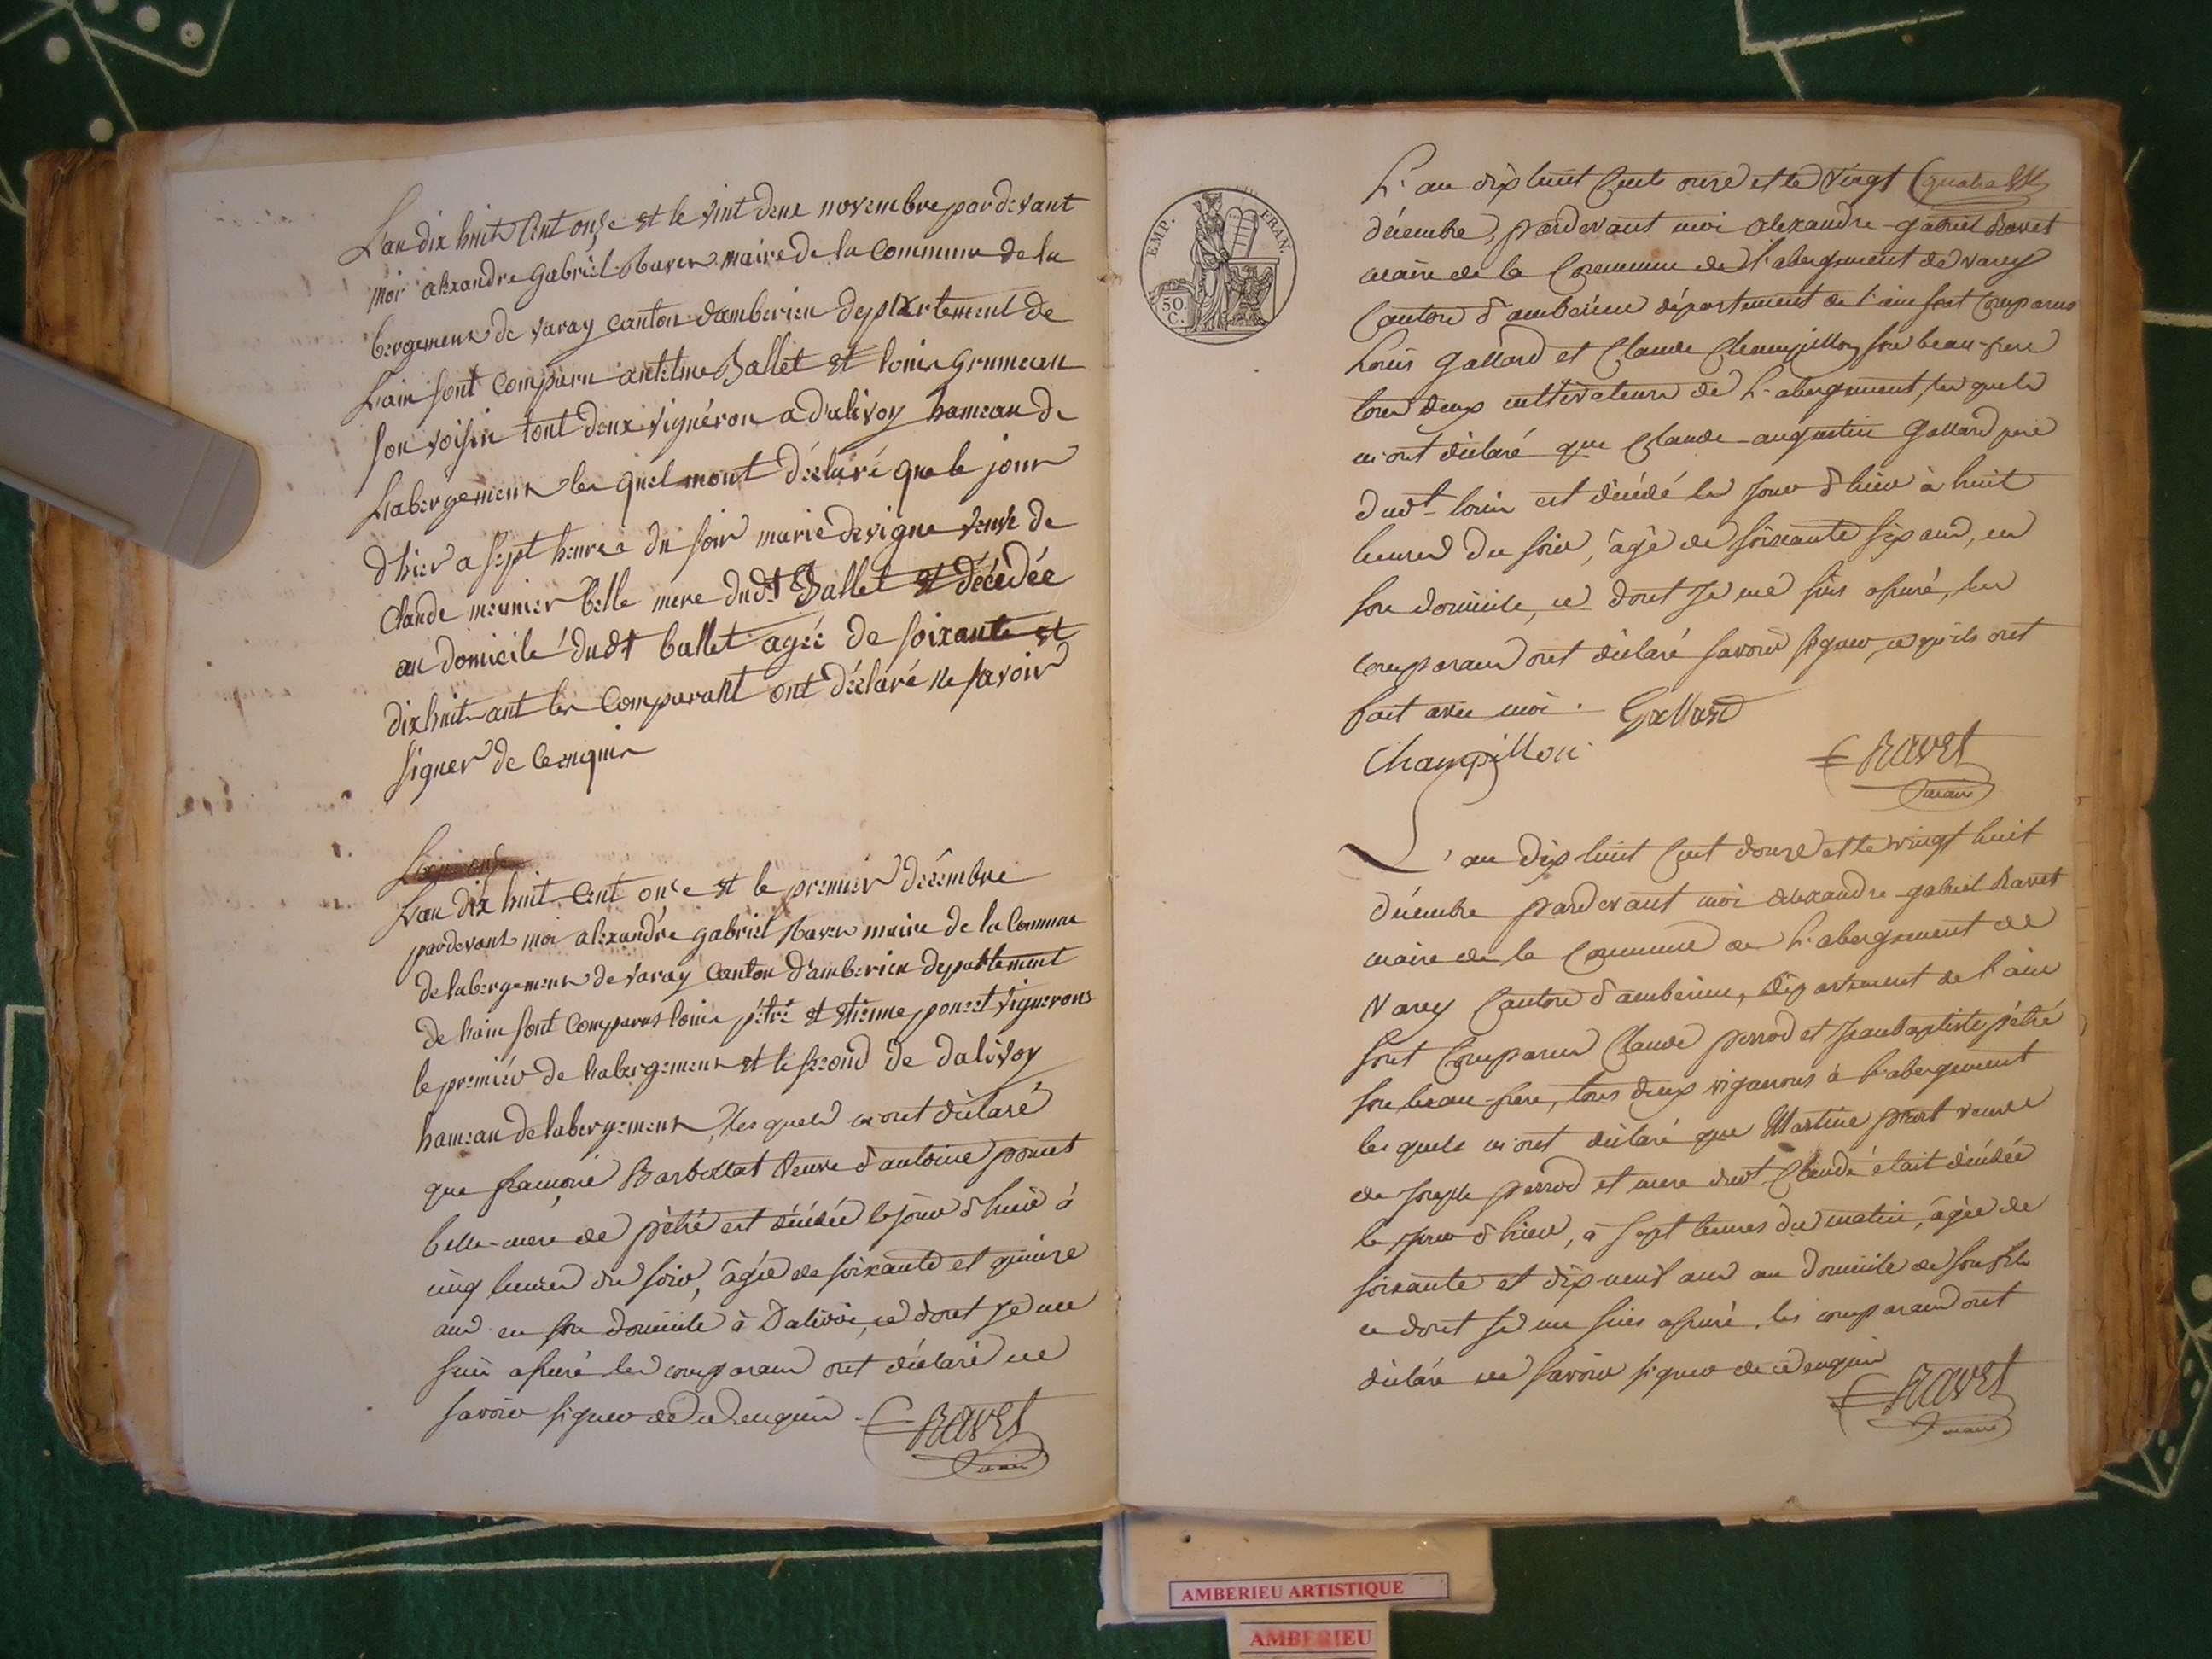 L'an dix huit Cent onze et le vint deux novembre pardevant
moi alexandre gabriel Ravet maire de la Commune de la
bergement de varay canton d'amberieu departement de
L'ain sont comparu antelme Ballet et louis Grumeau
son voisin tout deux vignéron a d'alivoy hameau de
Labergement les quel mont déclaré que le jour
d'hier a sept heures du soir marie devigne veuve de
Claude meunier belle mere dudt Ballet et décédée
au domicile dudt ballet agée de soixante et
dixhuit ant les Comparant ont déclaré ne savoir
signer de ce enquis
L'an dix huit cent onze et le premier décembre
pardevant moi alexandre gabriel Ravet maire de la Commune
de labergement de varay canton d'amberieu departement
de Lain sont comparus louis pétré et etienne poncet vignerons
le premier de Labergement et le second de dalivoy
hameau de labergement, les quels m'ont déclaré
que Barbollat veuve d'antoine poncet
belle-mere de pétré est décédée le jour d'hier à
cinq heures du soir, âgée de soixante et quinze
ans en son domicile à Dalivoi, ce dont je me
suis assuré les comparans ont déclaré ne
savoir signer de ce enquis. Ravet
maire
EMP. FRAN.
50 C.
L'an dix huit cent onze et le vingt quatre
décembre, pardevant moi alexandre-gabriel Ravet
maire de la Commune de l'abergement de varey
Canton d'amberieu département de l'ain sont comparus
Louis Gallard et Claude Champillon son beau-frere
tous deux cultivateurs de L'abergement, les quels
m'ont déclaré que Claude-augustin Gallard pere
dudt louis est décédé le jour d'hier à huit
heures du soir, âgé de soixante six ans, en
son domicile, ce dont je me suis assuré, les
comparans ont déclaré savoir signer, ce qu'ils ont
fait avec moi. Gallard
Champillon Ravet
maire
L'an dix huit cent douze et le vingt huit
décembre pardevant moi alexandre-gabriel Ravet
maire de la Commune de L'abergement de
Varey Canton d'amberieu, département de l'ain
sont Comparus Claude perrod et jean baptiste pétré
son beau-frere, tous deux vignerons à L'abergement
les quels m'ont déclaré que Martine veuve
de joseph perrod et mere dudt Claude était décédée
le jour d'hier, à sept heures du matin, âgée de
soixante et dix-neuf ans au domicile de son fils
ce dont je me suis assuré, les comparans ont
déclaré ne savoir signer de ce enquis
Ravet
maire
AMBERIEU ARTISTIQUE
AMBERIEU